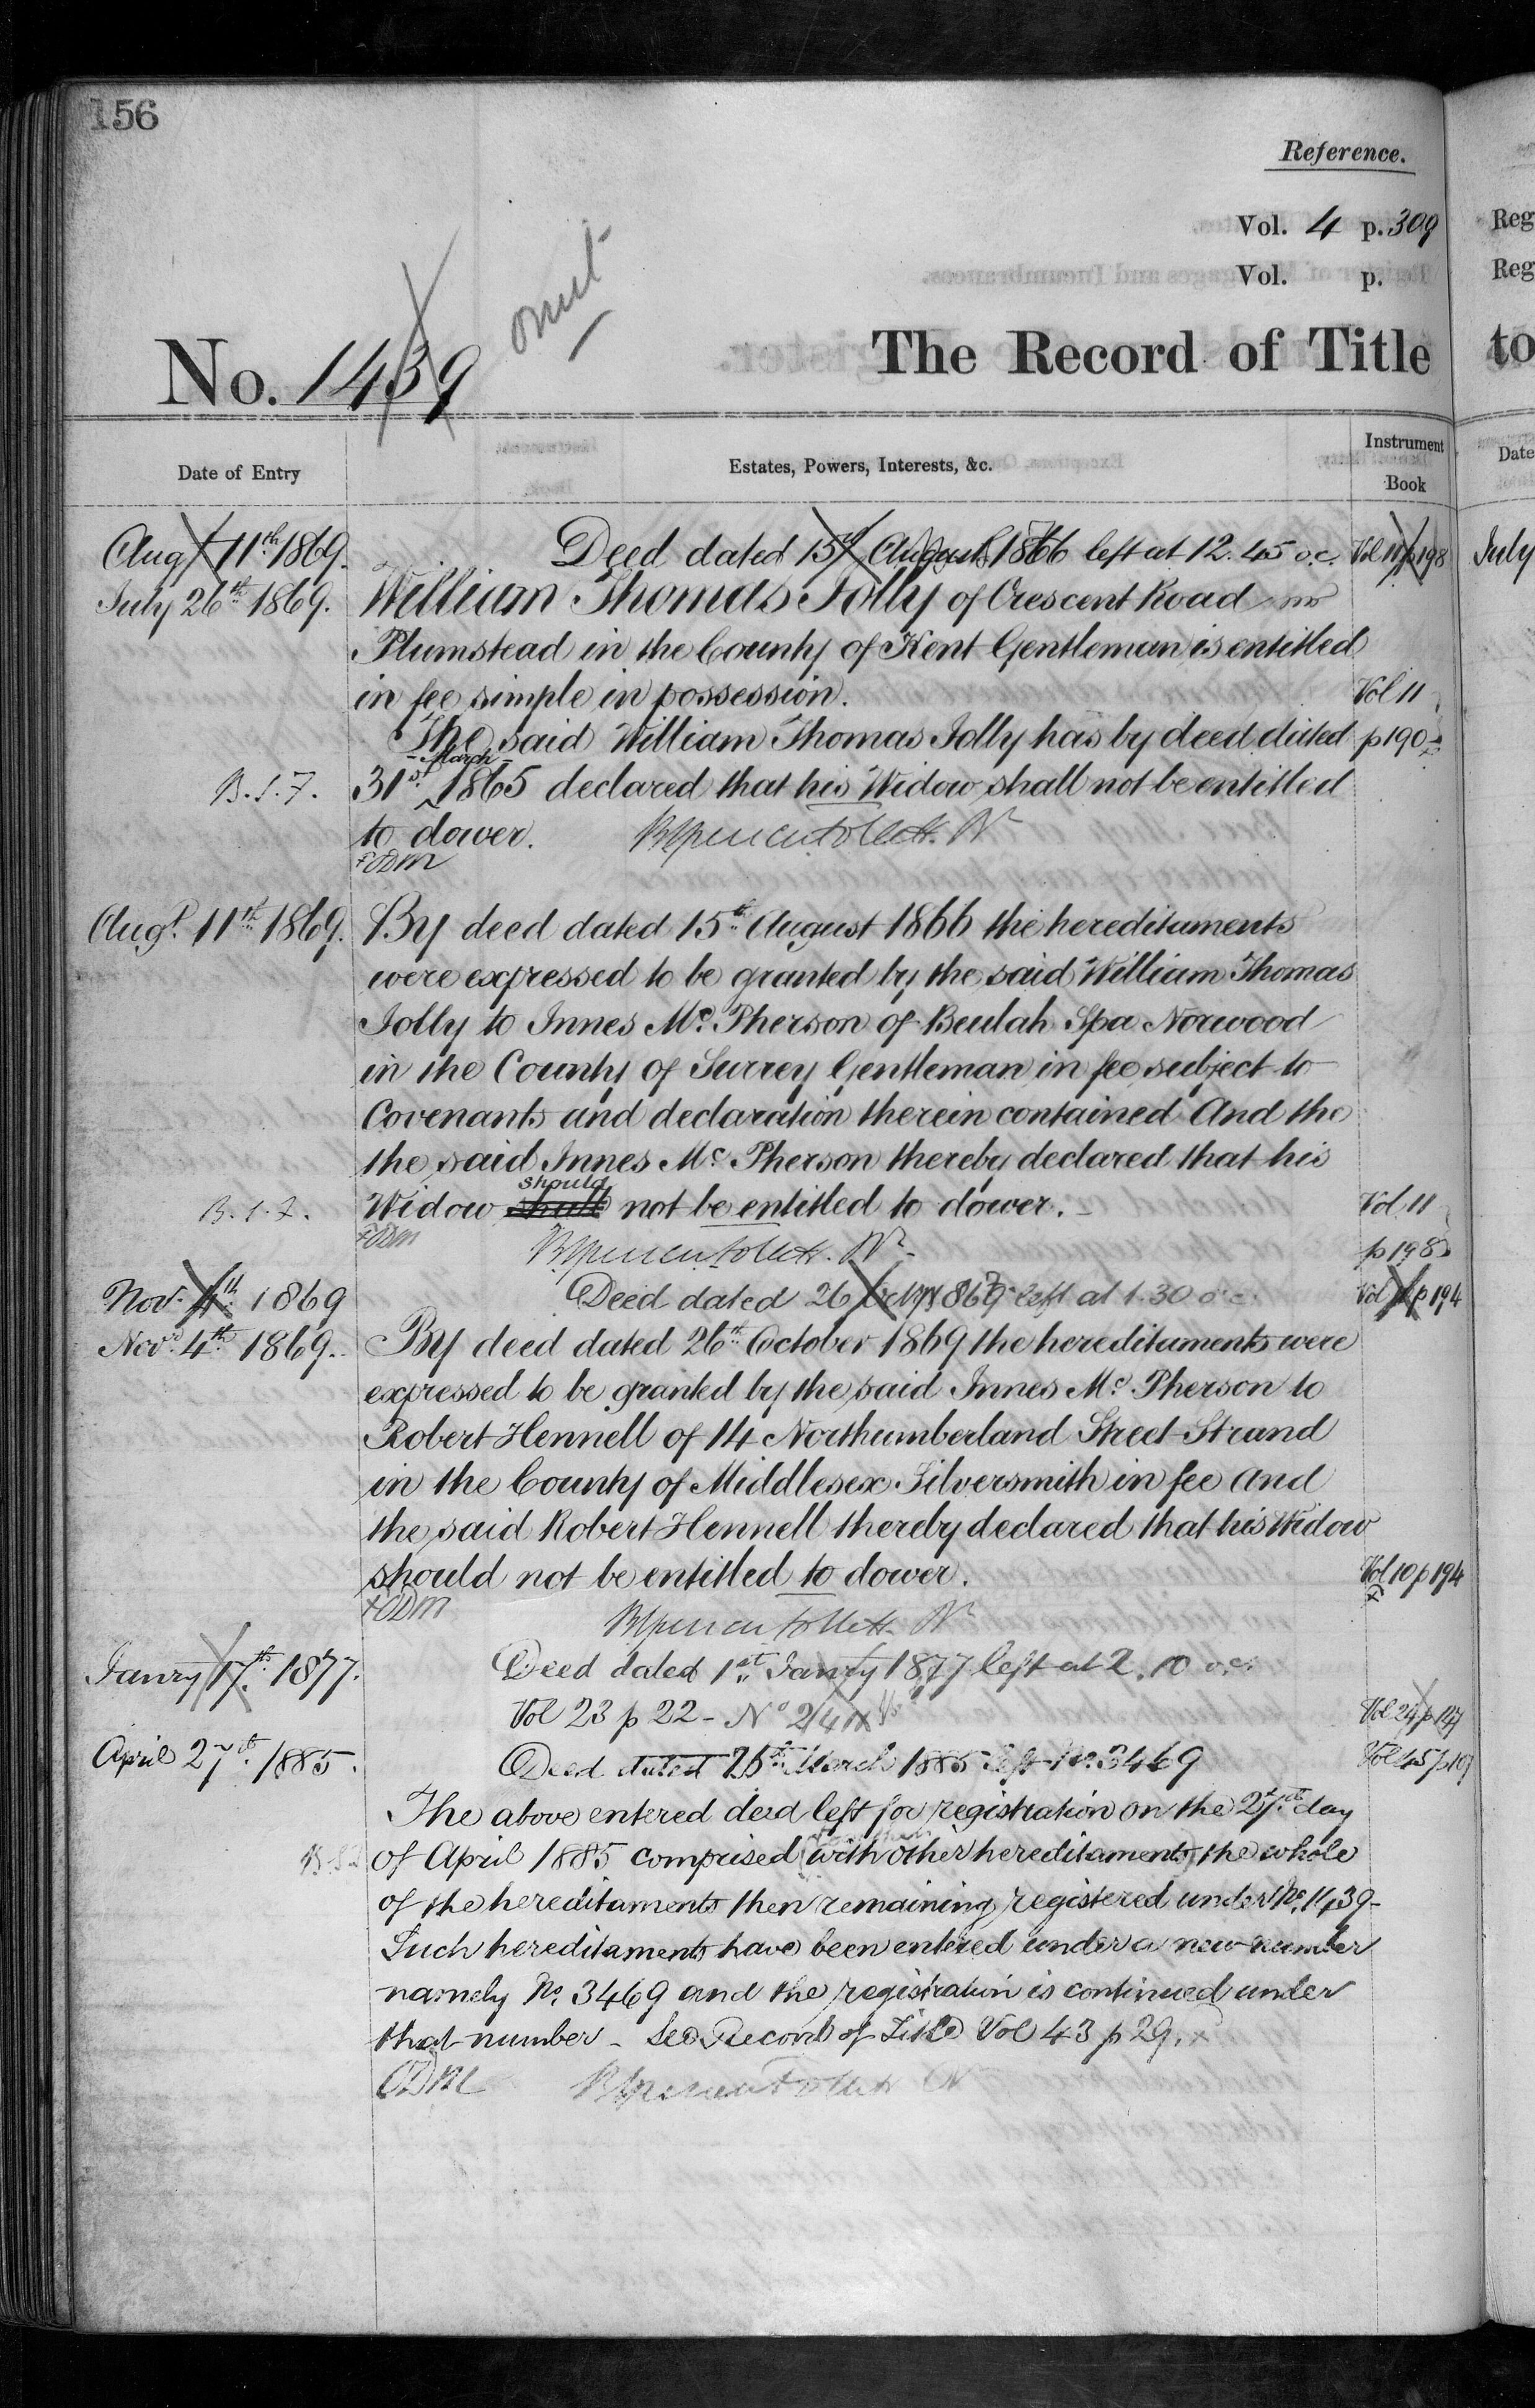 156
Reference.
Vol. 4 p. 309
Vol. p.
omit
No. 1439
The Record of Title
Date of Entry
Estates, Powers, Interests, &c.
Instrument Book
Augt 11th 1869. Deed dated 15th August 1866 left at 12.45 o.c. Vol 11 p 198
July 26th 1869. William Thomas Jolly of Crescent Road
Plumstead in the County of Kent Gentleman is entitled
in fee simple in possession. Vol 11
The said William Thomas Jolly has by deed dated p 190
B.S.F. 31st March 1865 declared that his Widow shall not be entitled
to dower.
ODM
Augt. 11th 1869. By deed dated 15th August 1866 the hereditaments
were expressed to be granted by the said William Thomas
Jolly to Innes Mc. Pherson of Beulah Spa Norwood
in the County of Surrey Gentleman in fee subject to
Covenants and declaration therein contained And the
the said Innes Mc. Pherson thereby declared that his
B.S.F. Widow shall should not be entitled to dower. Vol 11
ODM p 198
Nov. 4th 1869 Deed dated 26 Octr 1869 left at 1.30 o.c. Vol p 194
Novr. 4th 1869. By deed dated 26th October 1869 the hereditaments were
expressed to be granted by the said Innes Mc. Pherson to
Robert Hennell of 14 Northumberland Street Strand
in the County of Middlesex Silversmith in fee And
the said Robert Hennell thereby declared that his Widow
should not be entitled to dower. Vol 10 p 194
ODM
Janry 17th 1877. Deed dated 1st Janry 1877 left at 2.10 o.c.
Vol 23 p 22 - No Vol 24 p 147
April 27th 1885. Deed dated 25th March 1885 left No. 3469 Vol 45 p 107
The above entered deed left for registration on the 27th day
of April 1885 comprised with other hereditaments the whole
of the hereditaments then remaining registered under No. 1439 -
Such hereditaments have been entered under a new number
namely No. 3469 and the registration is continued under
that number - See Record of Title Vol 43 p 29.
ODM
Reg
Reg
to
Date
July